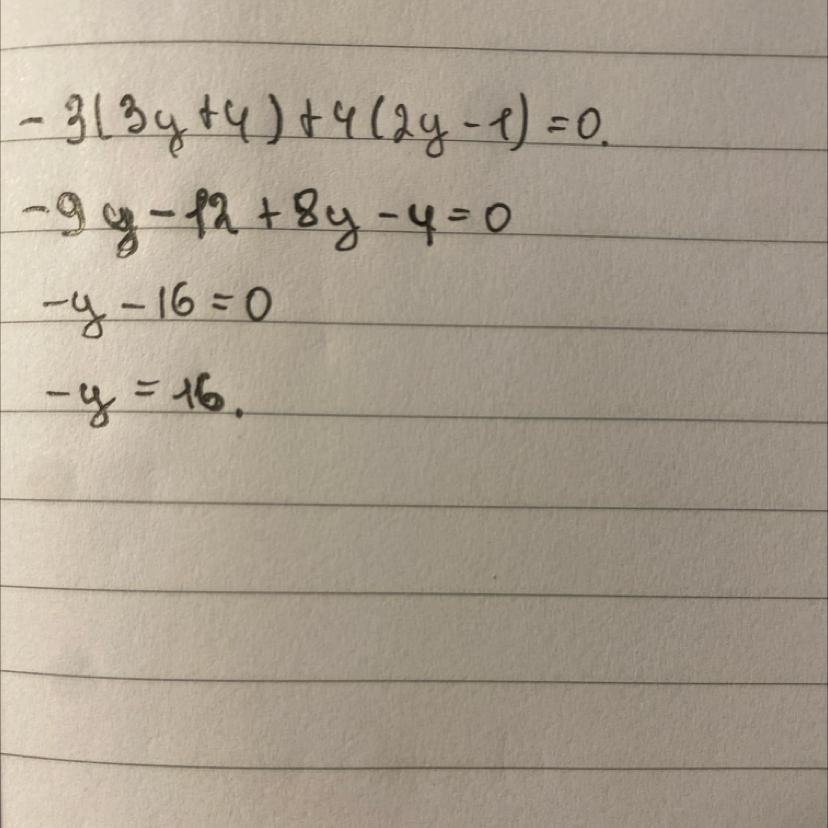 -3(3y+4)+4(2y-1)=0.
-9y-12+8y-4=0
-y-16=0
-y=16.